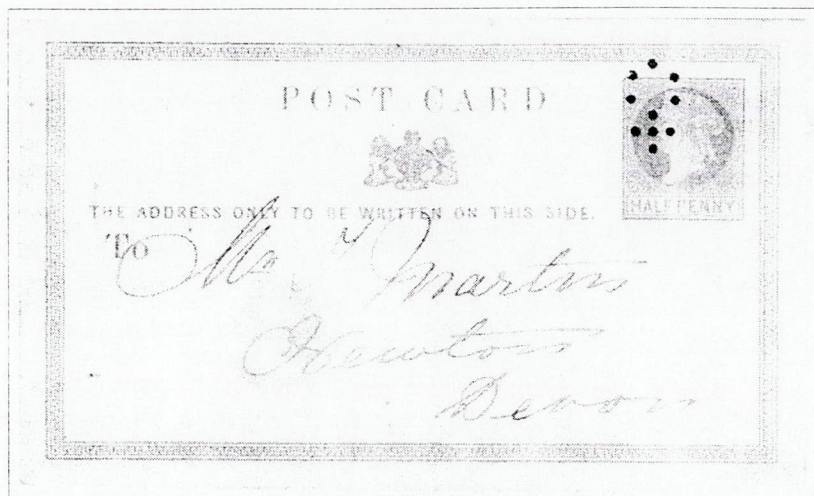 POST CARD
HALFPENNY
THE ADDRESS ONLY TO BE WRITTEN ON THIS SIDE.
To
Mr Martin
Newton
Devon